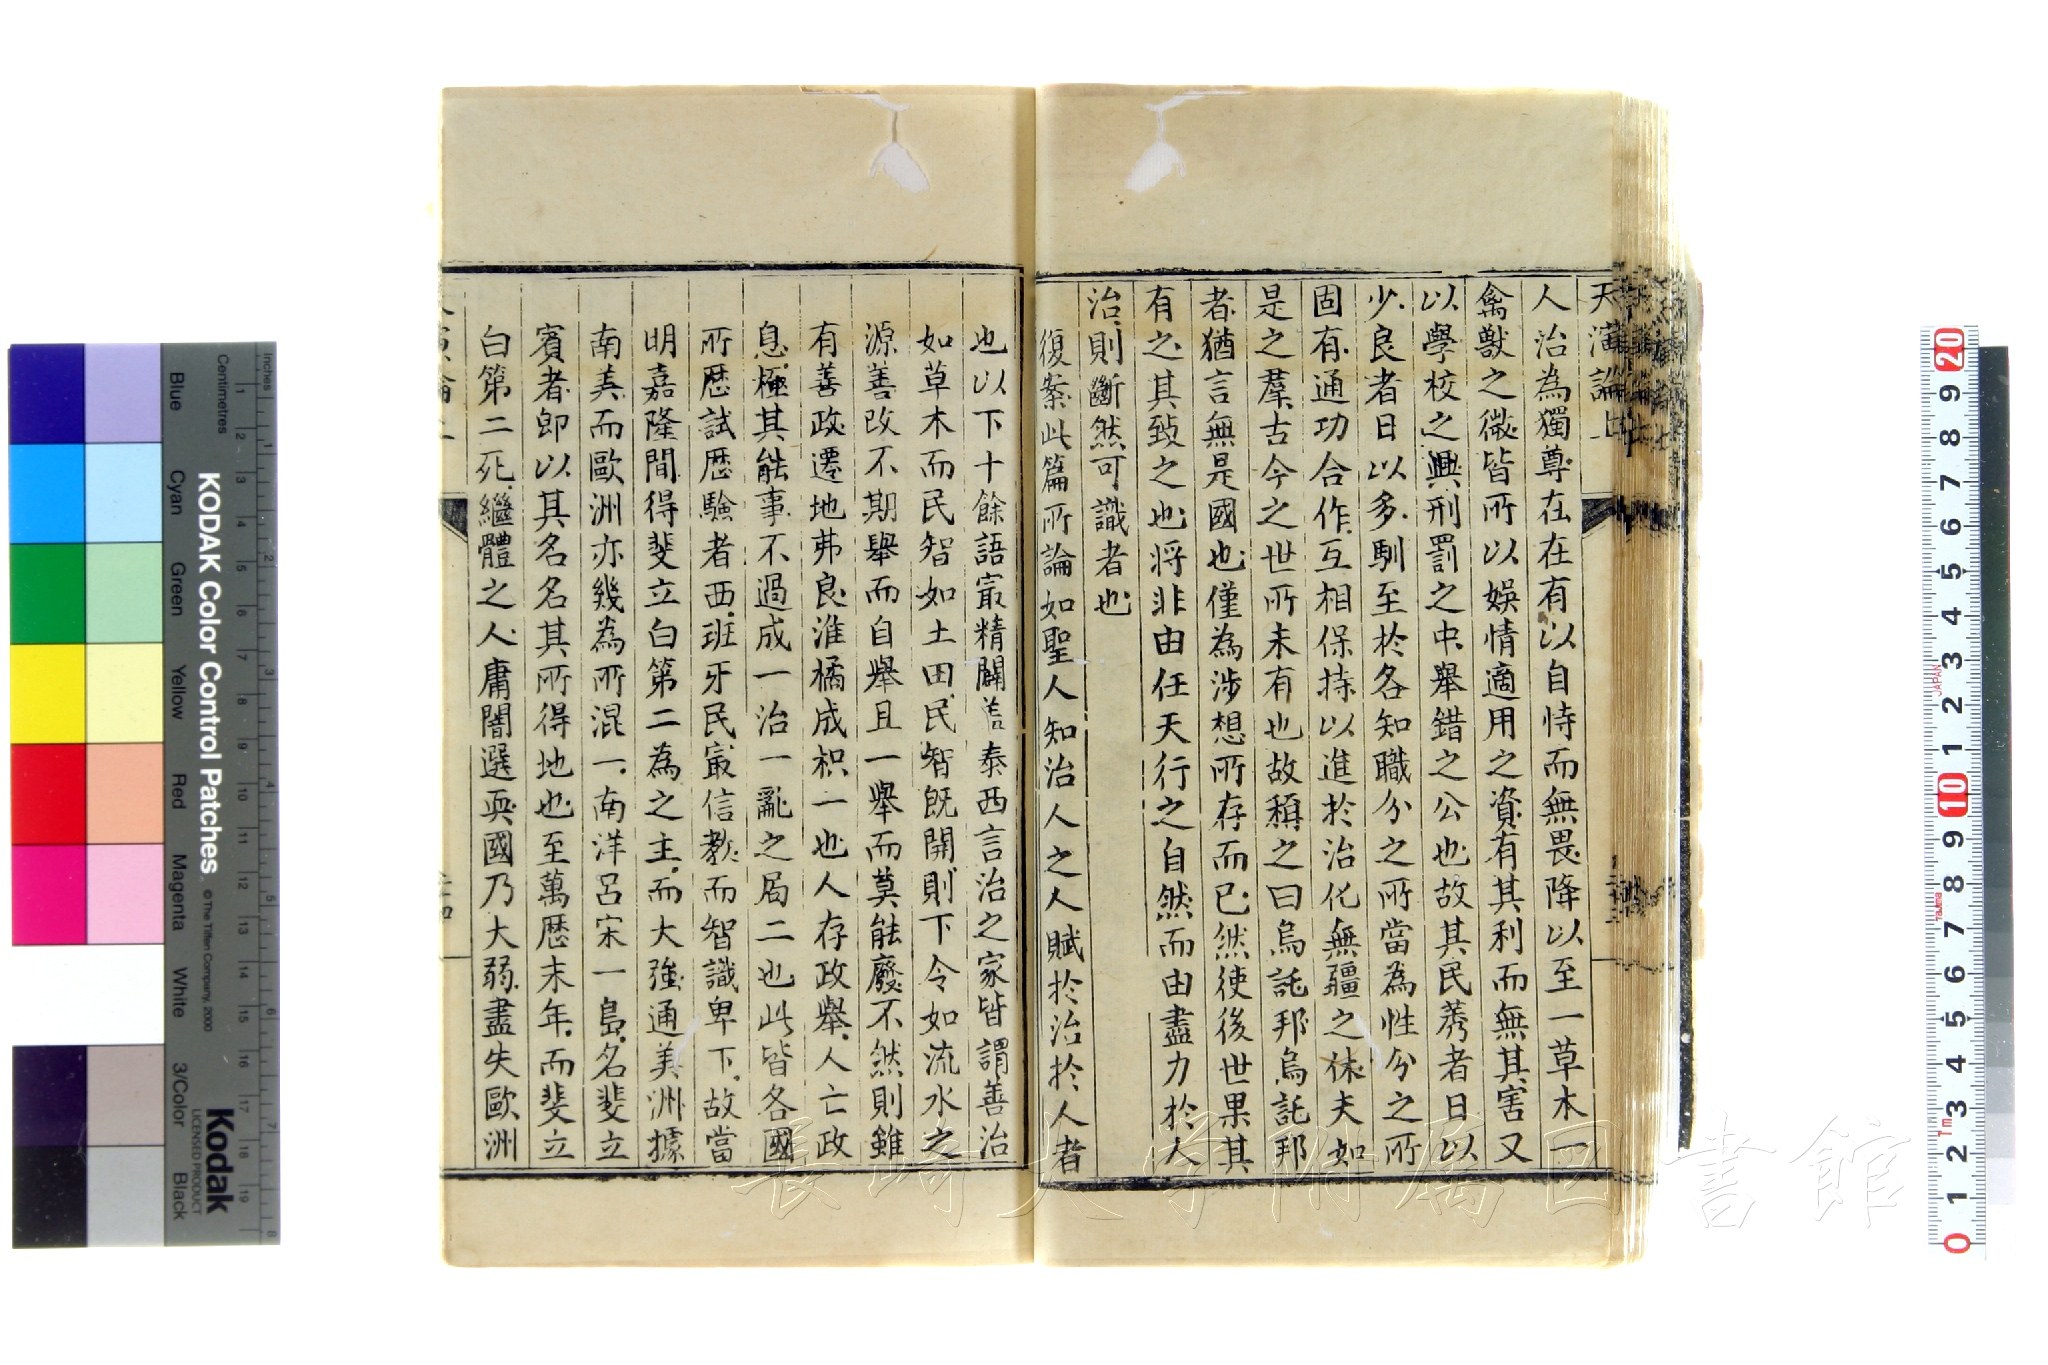 天演論上
人治為獨尊在在有以自恃而無畏降以至一草木一
禽獸之微皆所以娛情適用之資有其利而無其害又
以學校之興刑罰之中舉錯之公也故其民莠者日以
少良者日以多馴至於各知職分之所當為性分之所
固有通功合作互相保持以進於治化無疆之休夫如
是之羣古今之世所未有也故稱之曰烏託邦烏託邦
者猶言無是國也僅為涉想所存而已然使後世果其
有之其致之也將非由任天行之自然而由盡力於人
治則斷然可識者也
復案此篇所論如聖人知治人之人賦於治於人者
也以下十餘語冣精闢蓋泰西言治之家皆謂善治
如草木而民智如土田民智既開則下令如流水之
源善政不期舉而自舉且一舉而莫能廢不然則雖
有善政遷地弗良淮橘成枳一也人存政舉人亡政
息極其能事不過成一治一亂之局二也此皆各國
所歷試歷驗者西班牙民冣信教而智識卑下故當
明嘉隆間得斐立白第二為之主而大強通美洲據
南美而歐洲亦幾為所混一南洋呂宋一島名斐立
賓者即以其名名其所得地也至萬歷末年而斐立
白第二死繼體之人庸闇選耎國乃大弱盡失歐洲
KODAK Color Control Patches
© The Tiffen Company, 2000
Kodak
LICENSED PRODUCT
Inches
Centimetres
Blue
Cyan
Green
Yellow
Red
Magenta
White
3/Color
Black
1 2 3 4 5 6 7 8
1 2 3 4 5 6 7 8 9 10 11 12 13 14 15 16 17 18 19
20 9 8 7 6 5 4 3 2 1 10 9 8 7 6 5 4 3 2 1 0
JAPAN
Tajima
長崎大学附属図書館